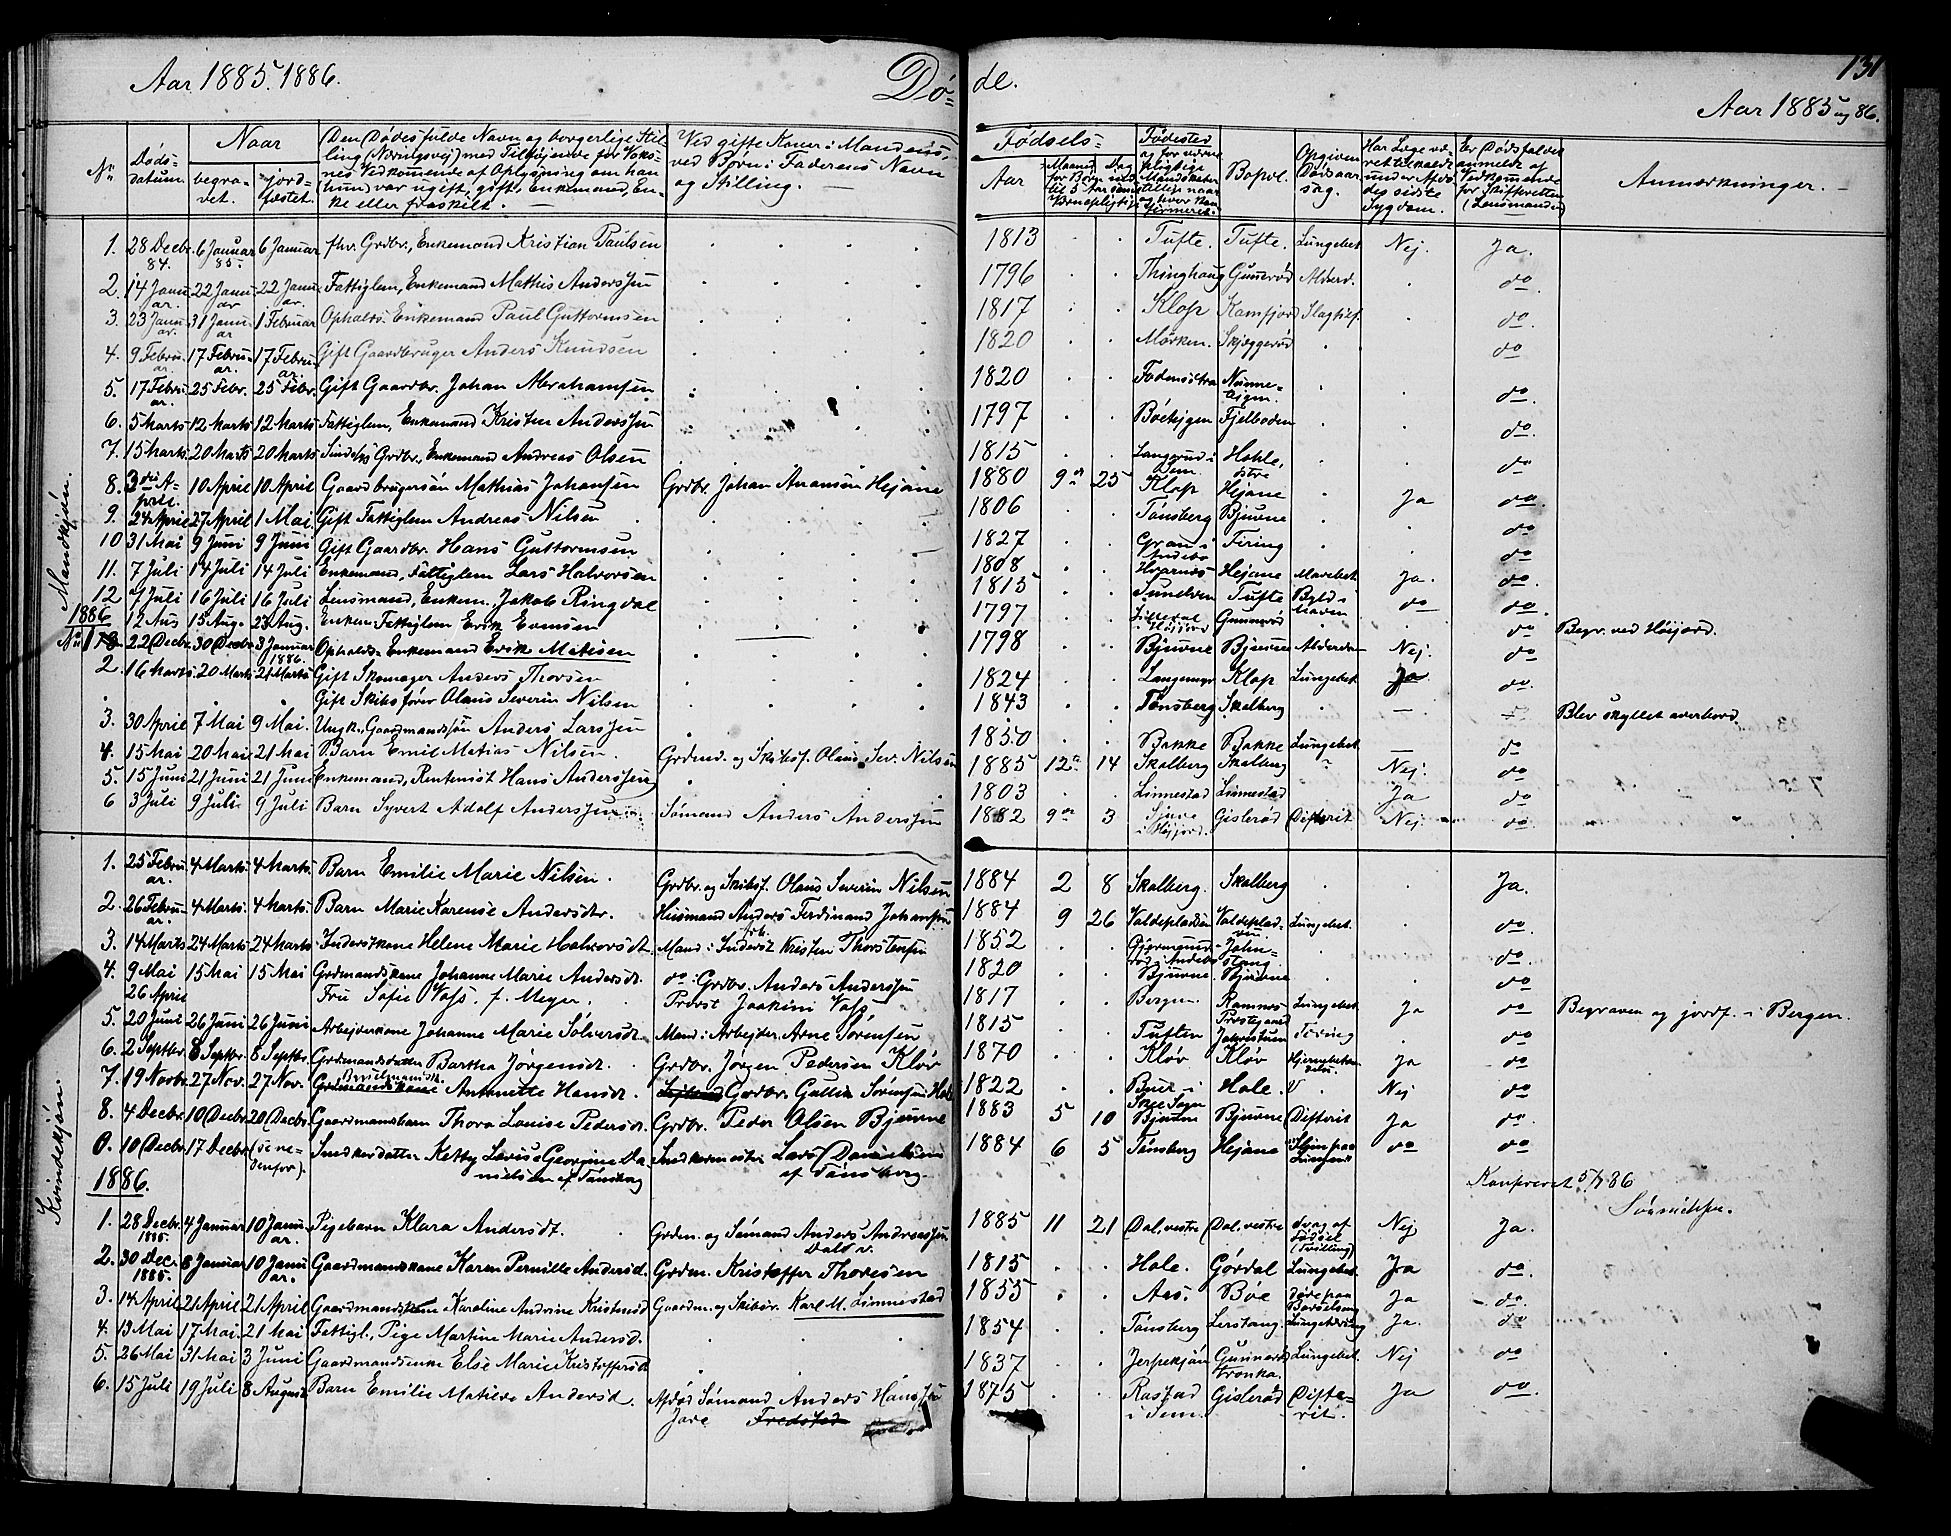 Aar 1885. 1886.
Dø-
de.
131
Aar 1885 og 86.
No
Døds-
datum.
Naar
begra-
vet.
jord-
fæstet.
Den Dødes fulde Navn og borgerlige Stil-
ling (Næringsvei) med Tilføiende for Voks-
nes Vedkommende af Oplysning om han
(hun) var ugift, gift, Enkemand, En-
ke eller fraskilt.
Ved gifte Koner: Mandens,
ved Børn: Faderens Navn
og Stilling.
Fødsels-
Aar
Fødested
Bopæl.
Opgiven
Dødsaar-
sag.
Har Læge væ-
ret tilkaldt
under Afdø-
des sidste
Sygdom.
Er Dødsfaldet
anmeldt af
Vedkommende
for Skifteretten
(Lensmanden)
Anmærkninger.
Mandkjøn.
1. 28 Decbr. 84. 6 Januar 85. 6 Januar fhv. Grdbr., Enkemand Kristian Paulsen 1813 Tufte. Tufte. Lungebet. Nej. Ja.
2. 14 Januar. 22 Januar 22 Januar. Fattiglem, Enkemand Mathis Anderssen 1796 Thinghaug Gunnerød Alderd. do.
3. 23 Januar. 31 Januar 1 Februar Opholds. Enkemand Paul Guttormsen 1817 Klop Kamfjord Slagtilf. do.
4. 9 Februar. 17 Februar. 17 Februar. Gift Gaardbruger Anders Knudsen 1820 Mørken. Skjæggerød do
5. 17 Februar. 25 Febr. 25 Febr. Gift Gaardbr. Johan Abrahamsen 1820 do.
6. 5 Marts 12 Marts 12 Marts Fattiglem, Enkemand Kristen Anderssen 1797 Fjelboden do.
7. 15 Marts. 20 Marts 20 Marts Grdbr., Enkemand Andreas Olsen 1815 Hahle, østre do
8. 3die April. 10 April 10 April Gaardbrugersøn Mathias Johansen Grdbr. Johan Hejane 1880 9 25 Klop Hejane Ja do.
9. 24 April 27 April 1 Mai Gift Fattiglem Andreas Nilsen 1806 Tønsberg Bjuerne do
10 31 Mai 9 Juni 9 Juni Gift Gaardbr. Hans Guttormsen 1827 Gran i Andebo Firing do
11. 7 Juli 14 Juli 14 Juli Enkemand, Fattiglem Lars Halvorsen 1808 Hvarnes Hejane Mavebet. Ja. do.
12 7 Juli 16 Juli 16 Juli Lensmand, Enkem. Jakob Ringdal 1815 Tufte Byld i Maven do do.
1886 12 Aug 15 Aug. 23 Aug. Enkem. Fattiglem Erik Evensen 1797 Gunnerød do Begr. ved Høijord.
No 1 22 Decbr 30 Decbr 3 Januar 1886. Opholds- Enkemand Erik Matisen 1798 Bjuerne Bjuerne Alderdom Nej. do
2. 16 Marts. 20 Marts 21 Marts Gift Skomager Anders Thorsen 1824 Langemyr Klop Lungebet. Ja do.
Gift Skibsfører Olaus Severin Nilsen 1843 Tønsberg Skalberg Blev skyllet overbord.
3. 30 April 7 Mai 9 Mai. Ungk., Gaardmandssøn Anders Larssen 1850 Bakke Bakke Lungebet. do
4. 15 Mai 20 Mai 21 Mai Barn Emil Matias Nilsen. Grdmd. og Skibsf. Olaus Sev. Nilsen 1885 12 14 Skalberg Skalberg Nej. do
5. 15 Juni 21 Juni 21 Juni Enkemand, Rentenist Hans Anderssen 1803 Linnestad Linnestad Ja do
6 3 Juli 9 Juli 9 Juli Barn Syvert Adolf Anderssen Sømand Anders Anderssen 1882 9 3 i Høijord. Gislerød Difterit Nej. do
Kvindekjøn.
1. 25 Februar. 4 Marts. 4 Marts. Barn Emilie Marie Nilsen. Grdbr. og Skibsf. Olaus Severin Nilsen 1884 2 8 Skalberg. Skalberg Ja.
2. 26 Februar 4 Marts. 4 Marts. Barn Marie Karense Andersdtr. Husmand Anders Ferdinand Johanssen 1884 9 26 Valdepladsen Valdepladsen Lungebet. do.
3. 14 Marts 24 Marts 24 Marts Inderstkone Helene Marie Halvorsdt. Mand: Inderst Kristen Thorstensen 1852 i Andebo do.
4. 9 Mai 15 Mai 15 Mai Grdmandskone Johanne Marie Andersdt. do: Grdbr. Anders Anderssen 1820 Bjuerne. Bjuerne do
26 April Fru Sofie Voss, f. Meyer. Provst Joakim Voss 1817 Bergen. Ramnes Præstegaard Lungebet. Ja do Begraven og jordf. i Bergen.
5. 20 Juni 26 Juni 26 Juni Arbejderkone Johanne Marie Sølversdt. Mand: Arbejder Arne Sørensen 1815 Tuften Tæring do
6. 2 Septbr. 8 Septbr. 8 Septbr. Grdmandsdatter Bertha Jørgensdt. Grdbr. Jørgen Pedersen Kløv 1870 Kløv Kløv Ja do
7. 19 Novbr. 27 Nov. 27 Nov. Grdmandskone Antonette Hansdt. Grdbr. Gullik Sørensen Hale 1822 Hale. Nej do
8. 4 Decbr. 10 Decbr 20 Decbr Gaardmandsbarn Thora Louise Pedersdt. Grdbr. Peder Olsen Bjuerne 1883 5 10 Bjuerne Bjuerne Difterit Ja do.
0. 10 Decbr. 17 Decbr (se nedenfor). Snedkersdatter Ketty Lovise Georgine Danielsen af Tønsberg Snedkermester Lars Danielsen af Tønsberg. 1884 6 5 Tønsberg Hejane "Slim paa Lungen" do do
1886.
Konfereret 5/7 86
1. 28 Decbr. 1885. 4 Januar 10 Januar. Pigebarn Klara Andersdt. Grdm. og Sømand Anders Andreassen Dal v. 1885 11 21 Dal, vestre Dal, vestre svag af Fødsel (Tvilling) Nej Ja.
2. 30 Dec. 1885. 8 Januar 10 Januar. Gaardmandskone Karen Pernille Andersd. Grdm. Kristoffer Thoresen 1815 Hale. Gørdal Lungebet. Ja do.
3. 14 April 21 April 21 April Gaardmandskone Karoline Andrine Kristensd Gaardm. og Skibsr. Karl M. Linnestad 1855 Aas. Bøe Døde paa Barselseng Ja do.
4. 13 Mai 17 Mai. 21 Mai Fattigl., Pige Martine Marie Andersd. 1854 Tønsberg Lerstang. Lungetæring Ja. do
5. 26 Mai 31 Mai 3 Juni Gaardmandsenke Else Marie Kristoffersdt. 1837 Lungebet. Nej do
6. 15 Juli 19 Juli 8 August Barn Emilie Matilde Andersd. Afdød Sømand Anders Hanssen 1875 Rastad i Sem. Gislerød Difterit. Ja do.